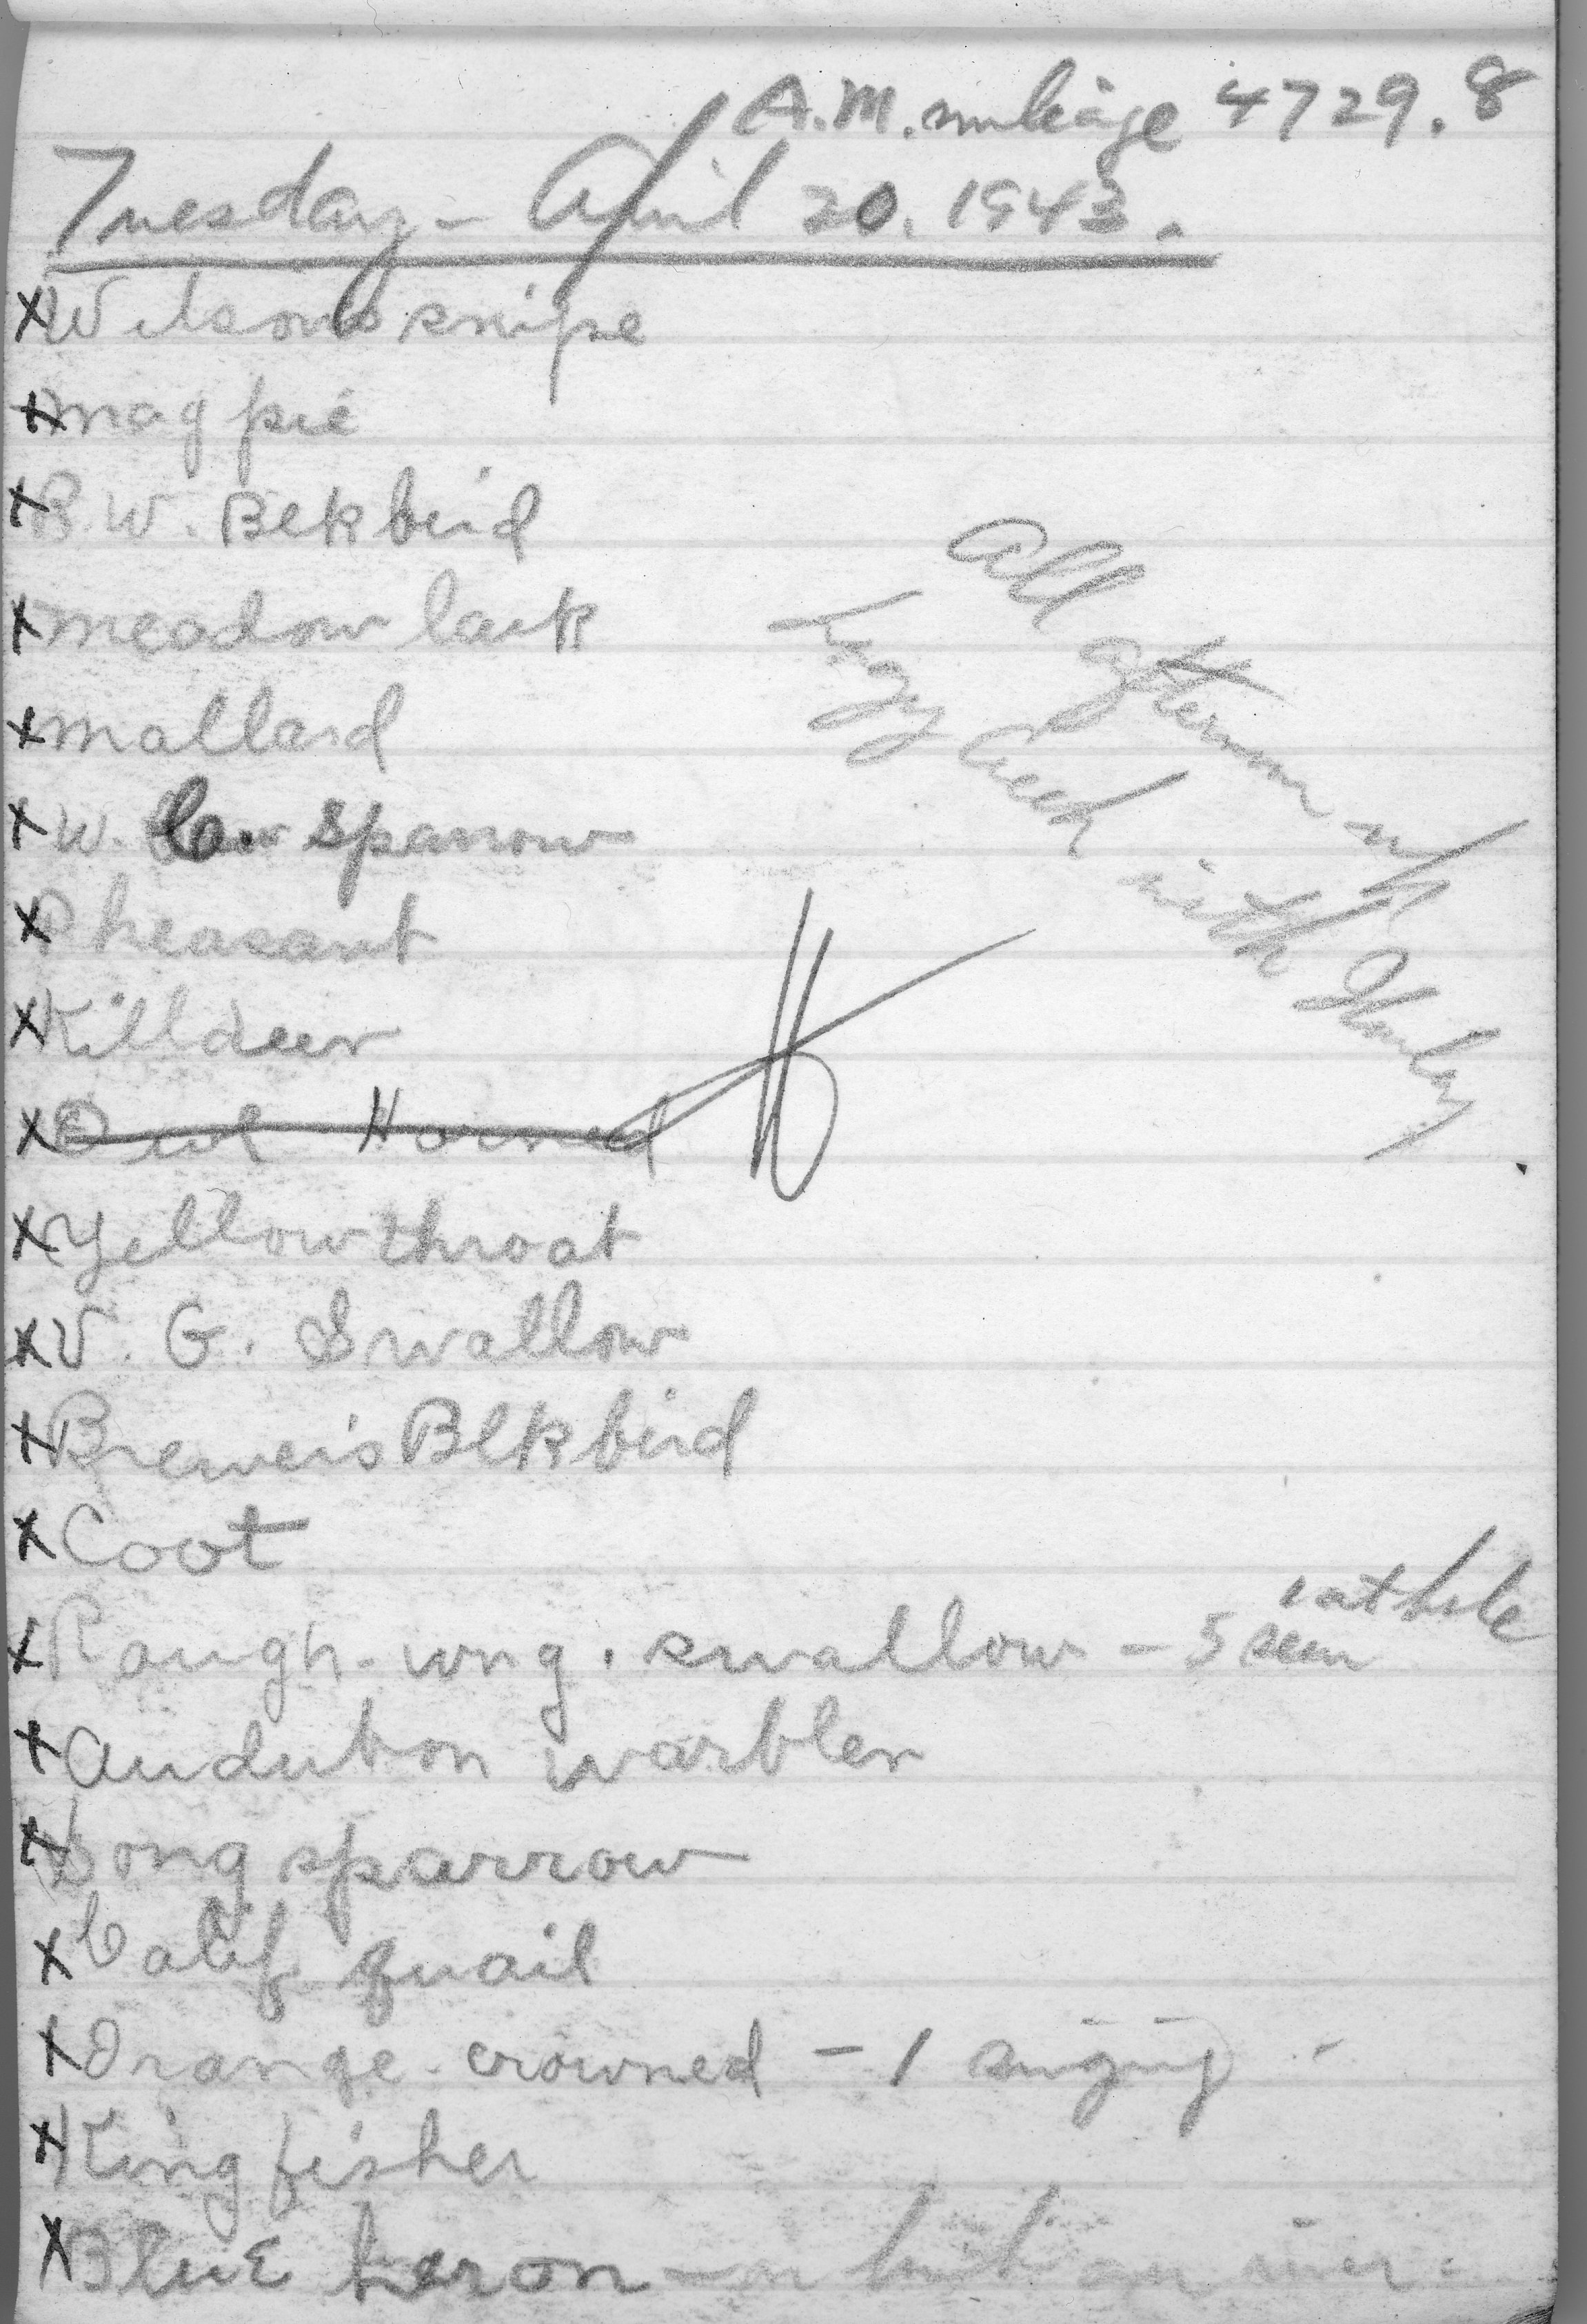 A.M. mileage 4729.8
Tuesday - April 20. 1943.
X Wilson's snipe
X magpie
X R.W. Blkbird
X meadow lark
X mallard
X W. Cr. sparrow
X Pheasant
X Killdeer
X Owl Horned
X Yellowthroat
X V. G. Swallow
X Brewer's Blkbird
X Coot
X Rough-wng. swallow - 5 seen
1 at hole
X Audubon warbler
X Song sparrow
X Calif quail
X Orange-crowned - 1 singing.
X Kingfisher
X Blue heron - in on river.
All afternoon up
Creek with Stanley